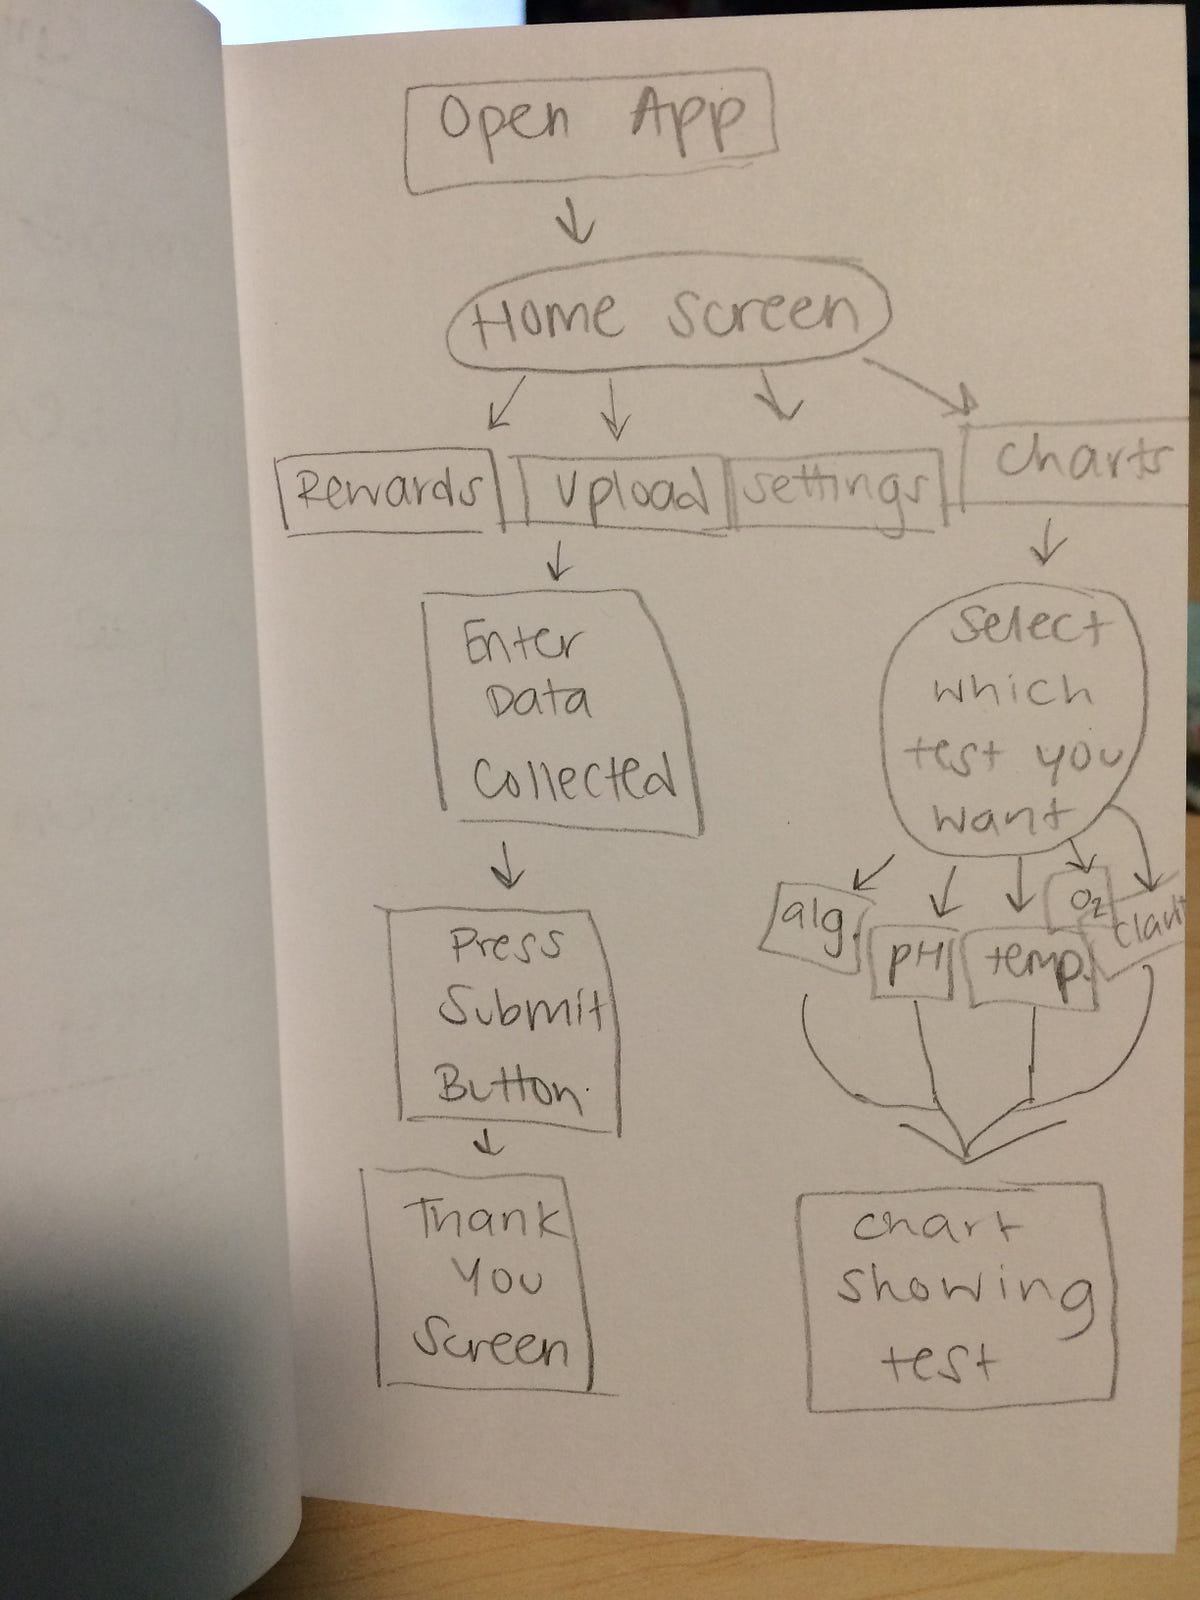 Open App
Home Screen
Rewards
Upload
settings
Charts
Enter
Data
Collected
Select
which
test you
want
alg.
pH
temp.
O2
Press
Submit
Button.
Thank
You
Screen
Chart
showing
test